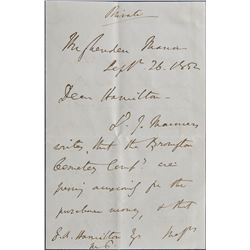 Private
Hughenden Manor
Sept 26. 1852
Dear Hamilton -
Ld. J. Manners
writes, that the Brompton
Cemetery Compy are
pressing for the
purchase money, & that
G. A. Hamilton Esq
M.P.